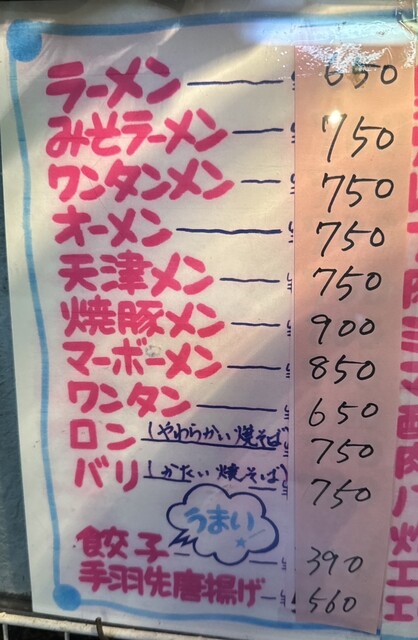 ラーメン 650
みそラーメン 750
ワンタンメン 750
オーメン 750
天津メン 750
焼豚メン 900
マーボーメン 850
ワンタン 650
ロン (やわらかい焼そば) 750
バリ (かたい焼そば) 750
うまい
餃子 390
手羽先唐揚げ 560